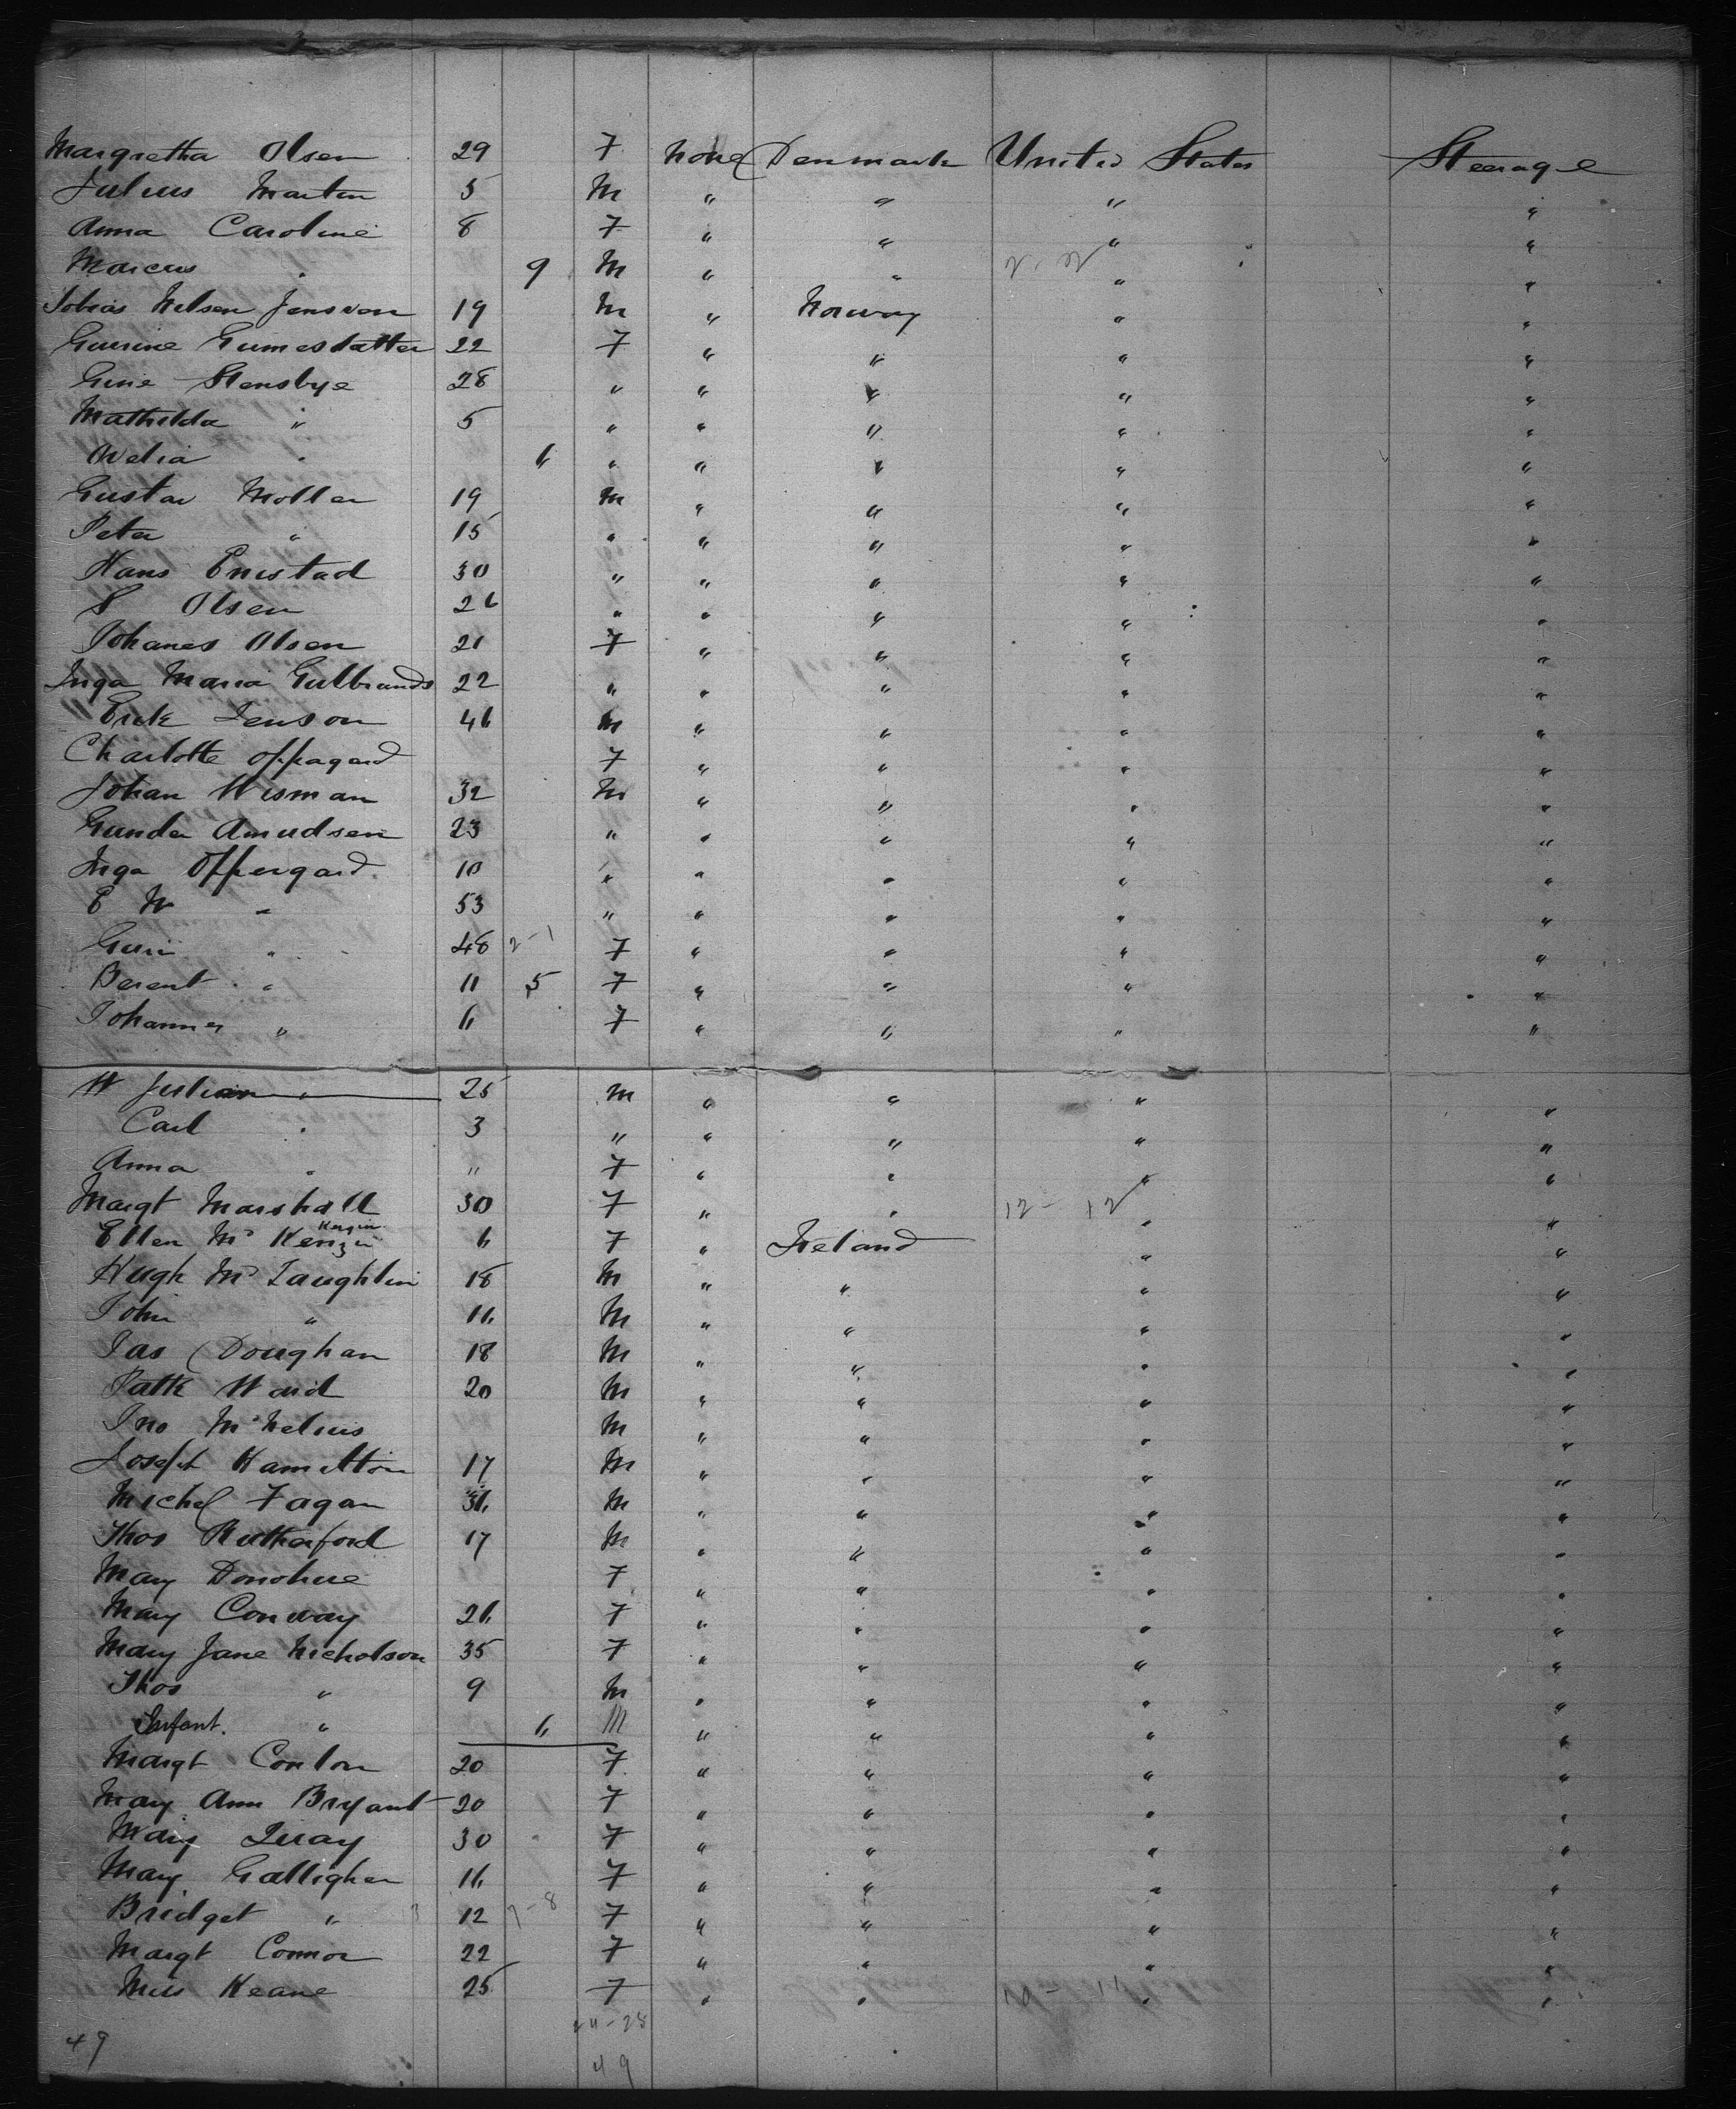 Margretha Olsen 29 F None Denmark United States Steerage
Julius Martin 5 M " " " "
Anna Caroline 8 F " " " "
Marcus " 9 M " " 2 - 2 " "
Tobias Nelsen Jenswen 19 M " Norway " "
Gurine Gumesdatter 22 F " " " "
Gine Stensbye 28 " " " " "
Mathilda " 5 " " " " "
Ovelia " 6 " " " " "
Gustav Moller 19 M " " " "
Peter " 15 " " " " "
Hans Enistad 30 " " " " "
S Olsen 26 " " " " "
Johanes Olsen 21 F " " " "
Inga Maria Gulbrands 22 " " " " "
Erik Jenson 46 M " " " "
Charlotte Oppagard F " " " "
Johan Wisman 32 M " " " "
Gunder Amudsen 23 " " " " "
Inga Oppergard 10 " " " " "
E N " 53 " " " " "
Guri " 48 2-1 F " " " "
Berent " 11 5 F " " " "
Johannes " 6 F " " " "
W Julian " 25 M " " " "
Carl " 3 " " " " "
Anna " " F " " " "
Margt Marshall 30 F " " 12 - 12 " "
Ellen Mc Kenzie 6 F " Ireland " "
Hugh Mc Laughlin 18 M " " " "
John " 16 M " " " "
Jas Doughan 18 M " " " "
Patk Ward 20 M " " " "
Jno McNelius M " " " "
Joseph Hamilton 17 M " " " "
Michel Fagan 36 M " " " "
Thos Rutherford 17 M " " " "
Mary Donohue F " " " "
Mary Conway 26 F " " " "
Mary Jane Nicholson 35 F " " " "
Thos " 9 M " " " "
Infant. " 6 M " " " "
Margt Conlon 20 F " " " "
Mary Ann Bryant 20 F " " " "
Mary Quay 30 F " " " "
Mary Galligher 16 F " " " "
Bridget " 12 7-8 F " " " "
Margt Connor 22 F " " " "
Miss Keane 25 F " " " "
24-28
49 49